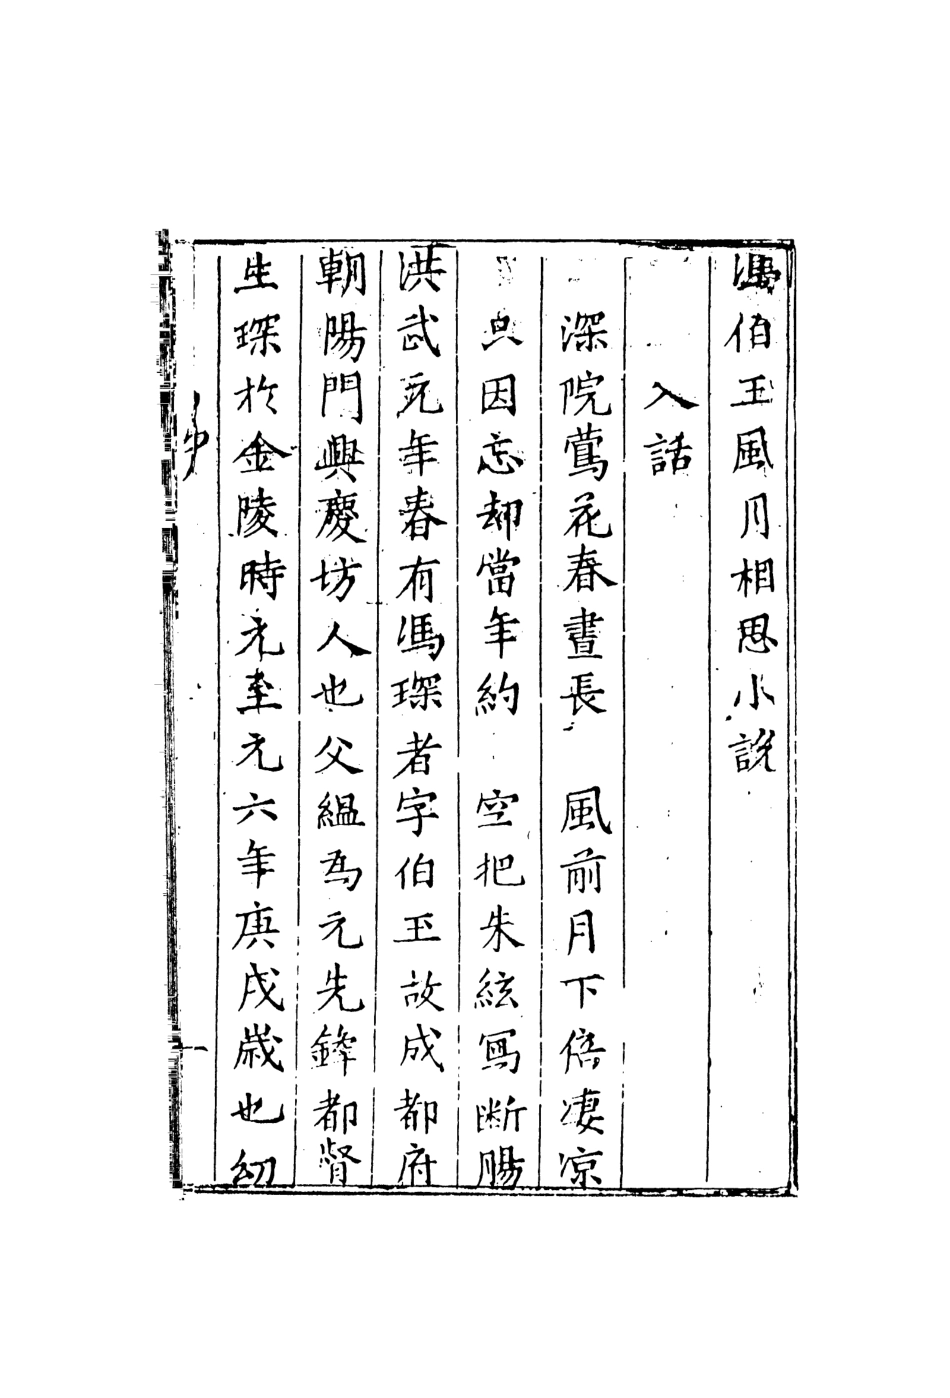 馮伯玉風月相思小說
入話
深院鶯花春晝長　風前月下倍凄凉
只因忘却當年約　空把朱絃寫斷腸
洪武元年春有馮琛者字伯玉故成都府
朝陽門興慶坊人也父緼為元先鋒都督
生琛於金陵時元至元六年庚戌歲也紉
一